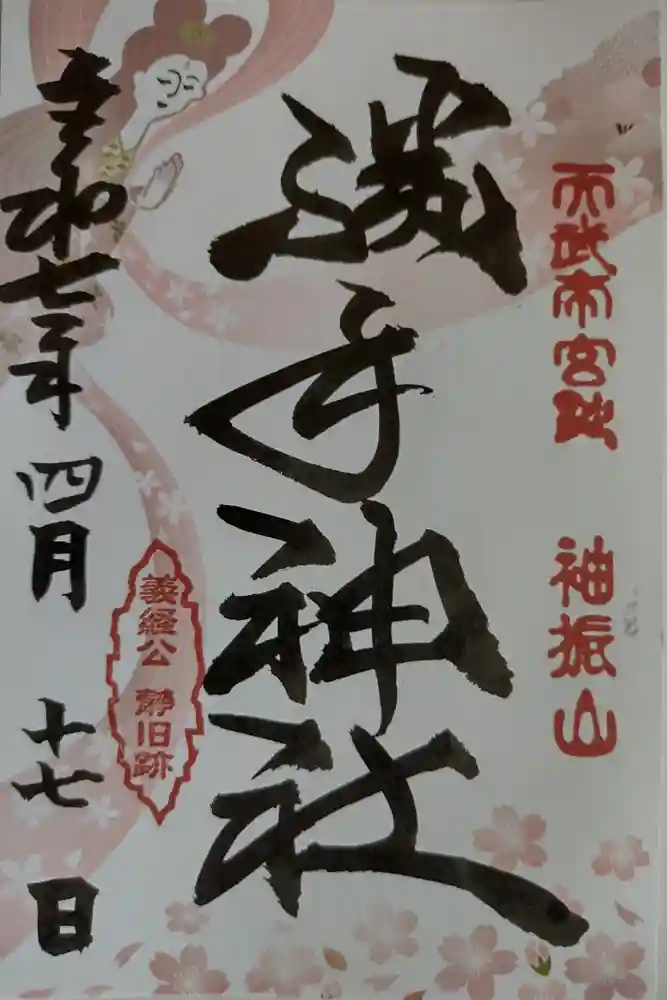 天武帝宮跡 袖振山
勝手神社
義経公 静旧跡
令和七年四月十七日